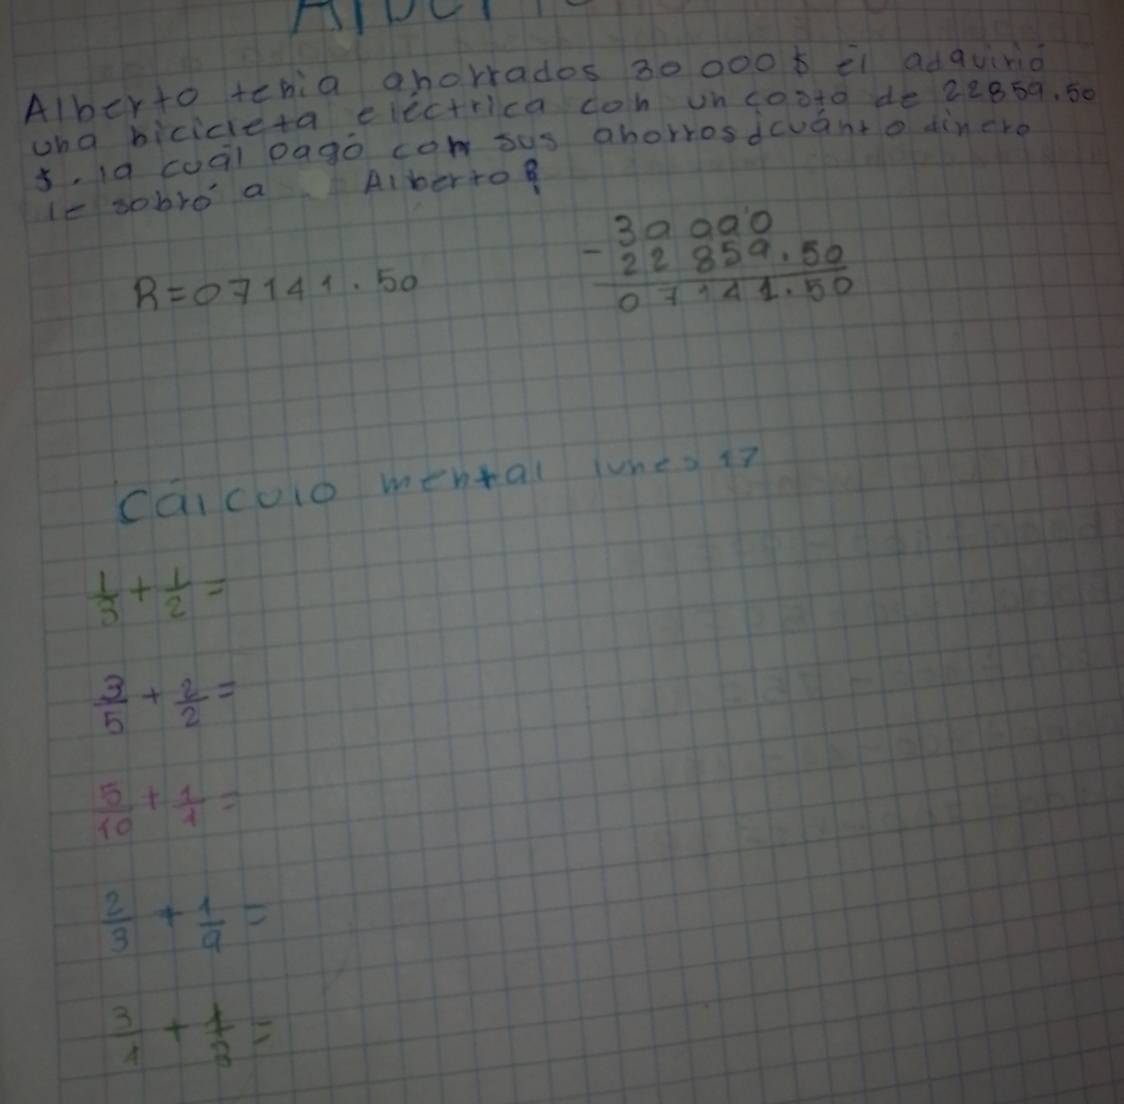 Alberto tenia ahorrados 30 000 $ él adquirió
una bicicleta eléctrica con un costo de 22859.50
$. la cuál pagó con sus ahorros ¿cuánto dinero
le sobró a Alberto?
30 000
- 22 859.50
R=07141.50
07141.50
Cálculo mental lunes 17
1/3 + 1/2 =
3/5 + 2/2 =
5/10 + 1/1 =
2/3 + 1/9 =
3/1 + 1/3 =